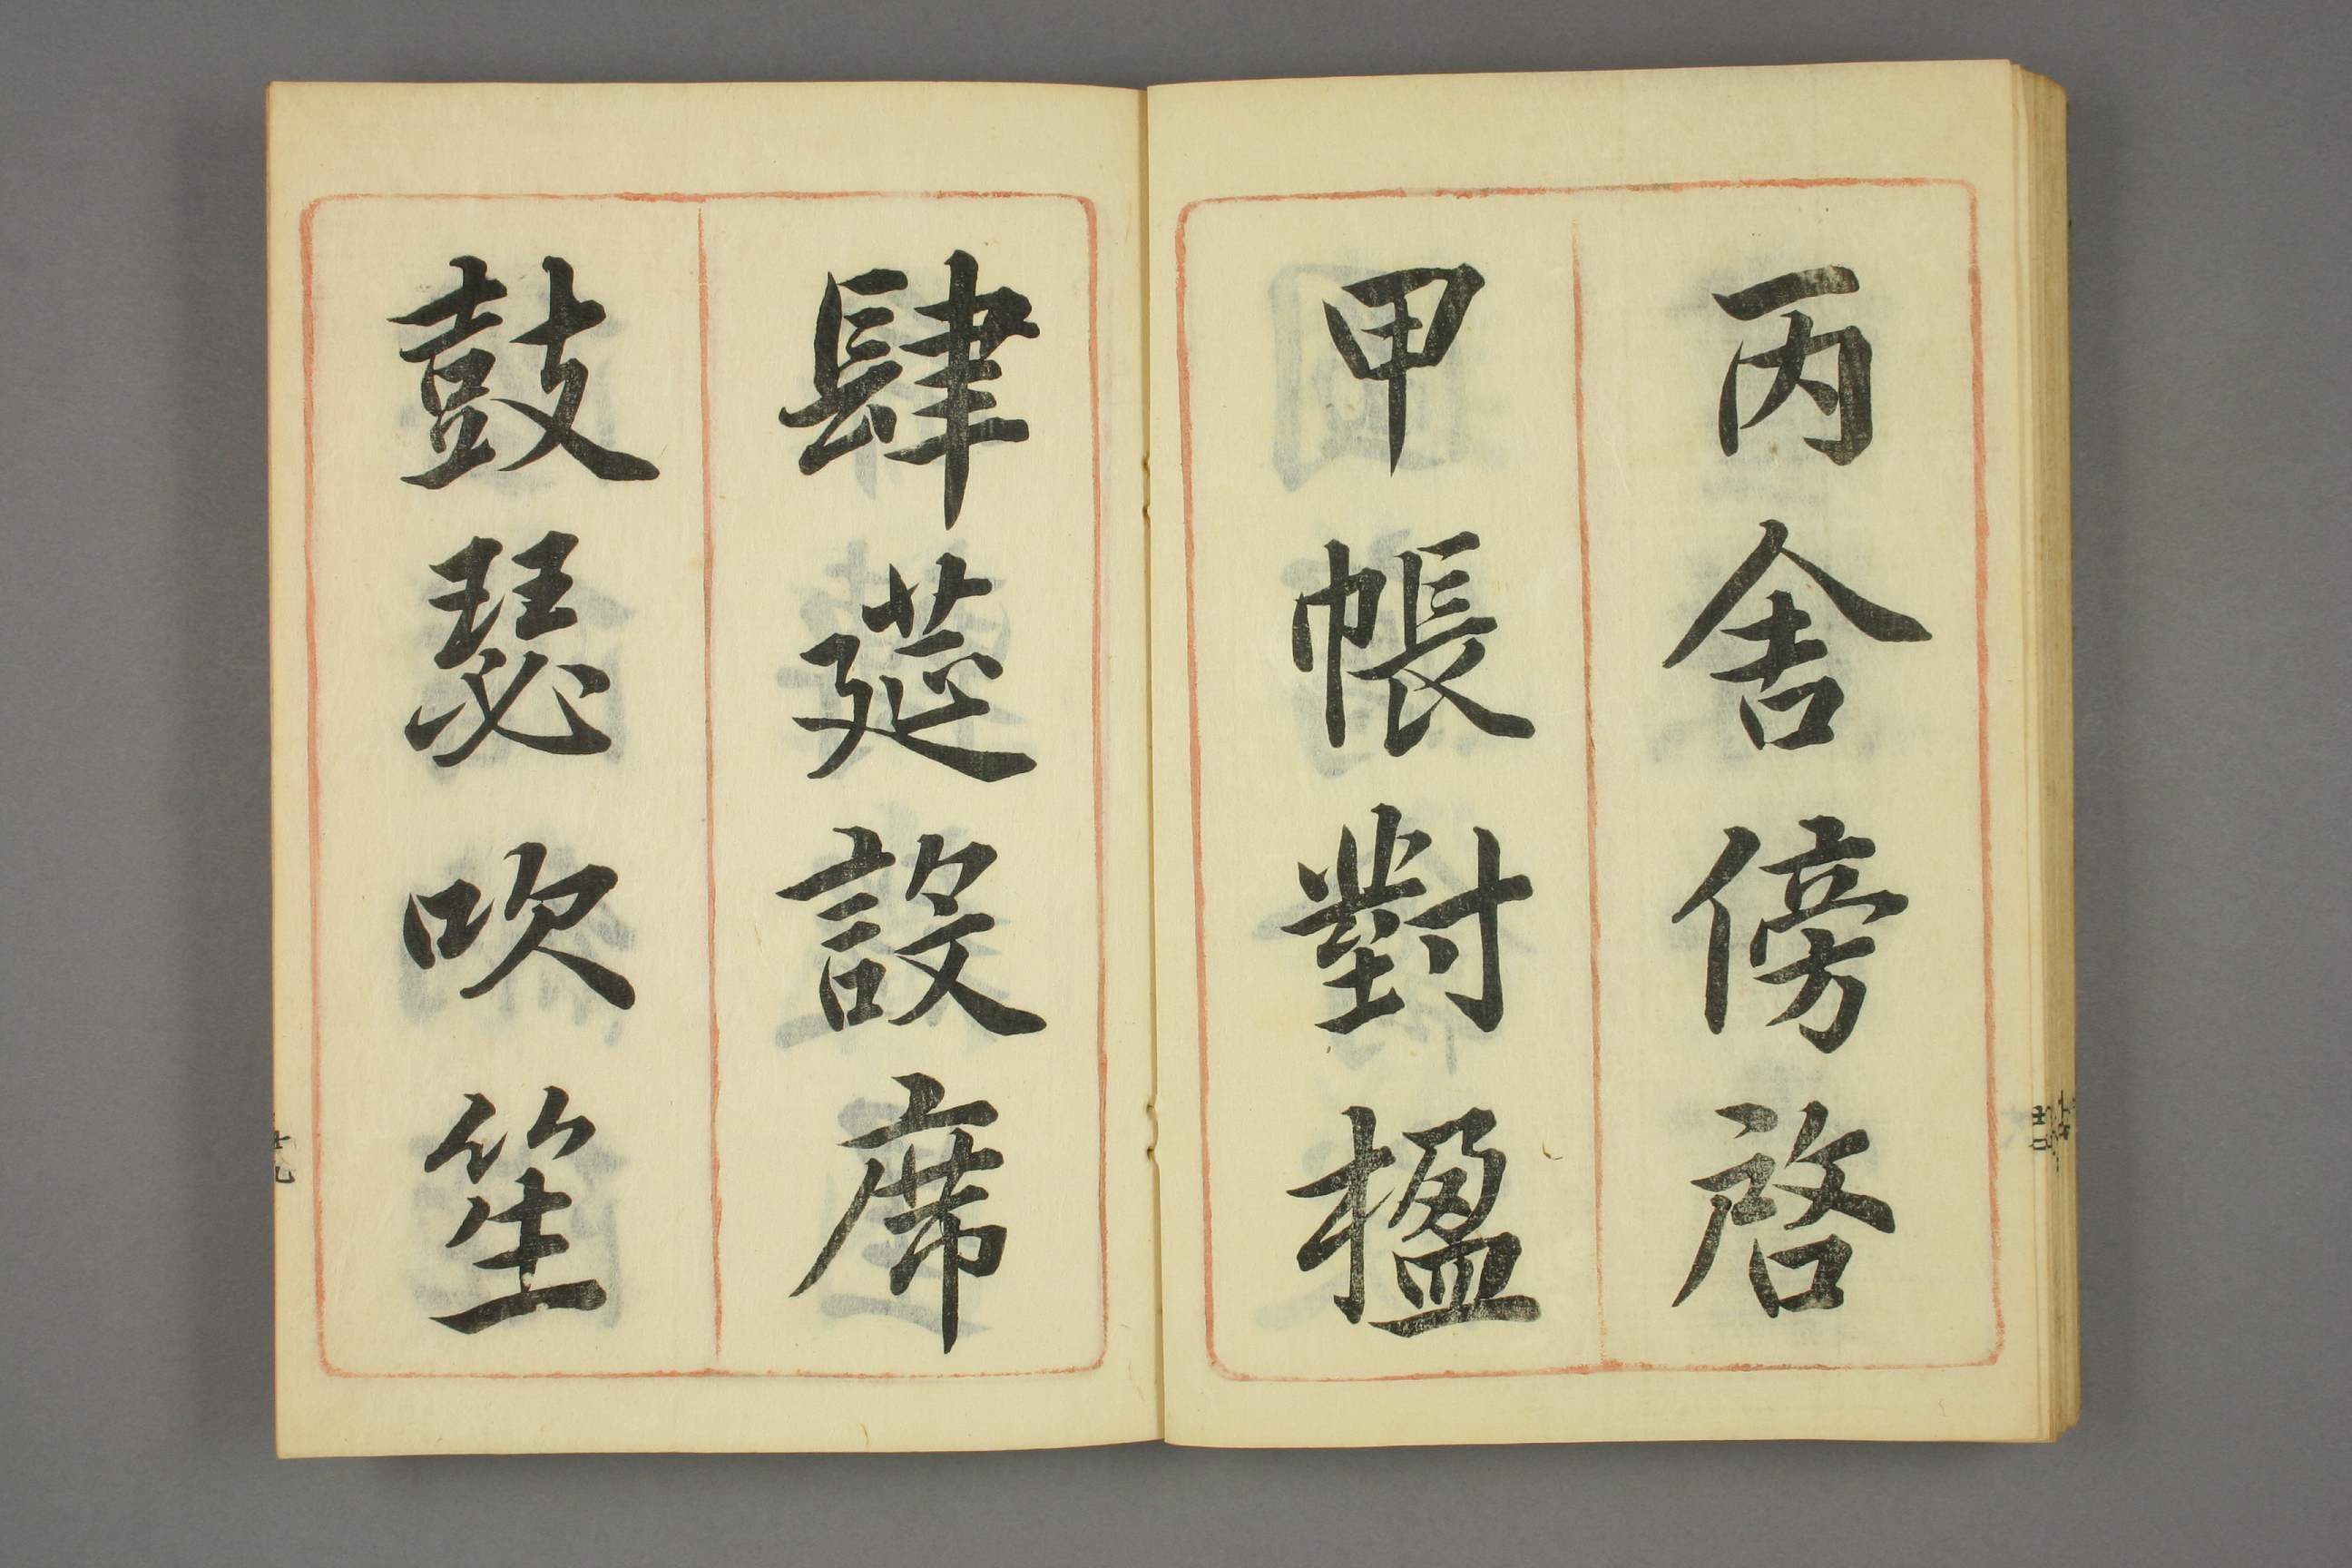 丙舍傍啓
甲帳對楹
肆莚設席
鼓瑟吹笙
十九